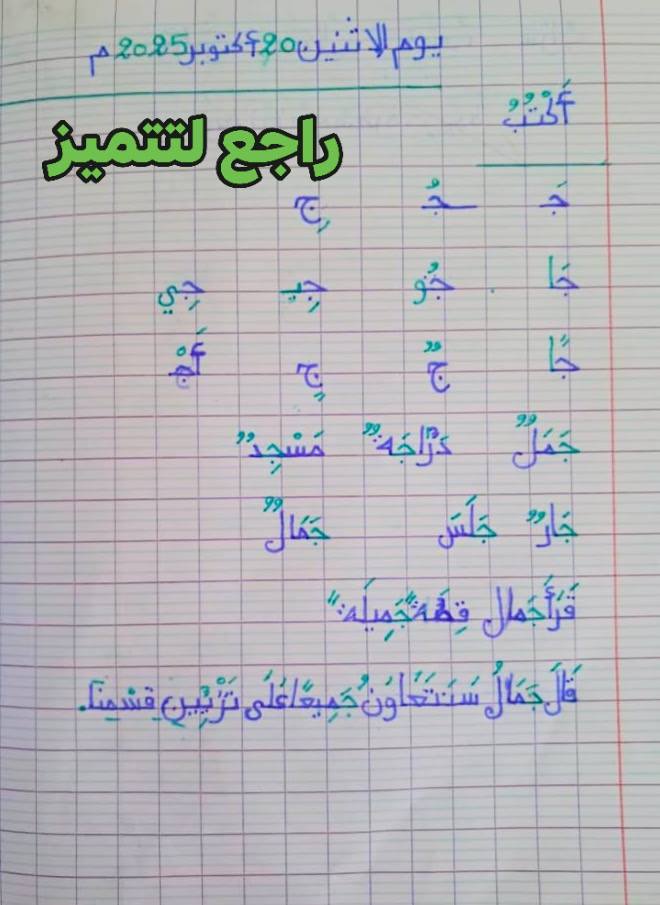 يوم الاثنين 20 أكتوبر 2025 م
أَكْتُبُ
راجع لتتميز
جَ جُ جِ
جَا جُو جِيـ جِي
جًا جٌ جٍ أَجْ
جَمَلٌ دَرَّاجَةٌ مَسْجِدٌ
جَارٌ جَلَسَ جَمَالٌ
قَرَأَ جَمال قِصَّةً جَمِيلَةً
قَالَ جَمَالُ سَنَتَعَاوَنُ جَمِيعًا عَلَى تَزْيِينِ قِسْمِنَا.